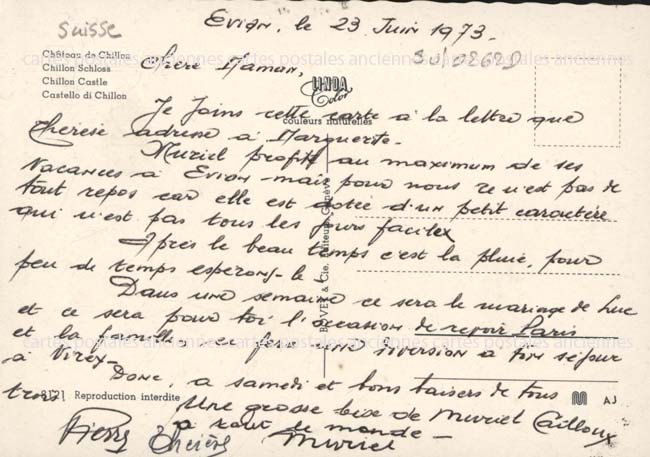 Suisse
Evian, le 23 Juin 1973.
Château de Chillon
Chillon Schloss
Chillon Castle
Castello di Chillon
Chère Maman,
LINDA
Color
couleurs naturelles
cartes postales anciennes cartes postales anciennes cartes postales anciennes
Je joins cette carte à la lettre que
Thérèse adresse à Marguerite.
Muriel profite au maximum de ses
vacances à Evian mais pour nous ce n'est pas de
tout repos car elle est dotée d'un petit caractère
qui n'est pas tous les jours facile
Après le beau temps c'est la pluie, pour
peu de temps espérons-le.
Dans une semaine ce sera le mariage de Luc
et ce sera pour toi l'occasion de revoir Paris
et la famille, ce fera une diversion à ton séjour
à Virex
cartes postales anciennes cartes postales anciennes cartes postales anciennes
Donc, à samedi et bons baisers de tous
trois
8121 Reproduction interdite
AJ
Une grosse bise de Muriel Cailloux
à tout le monde
Pierre Thérèse Muriel
& Cie, Editeurs Genève